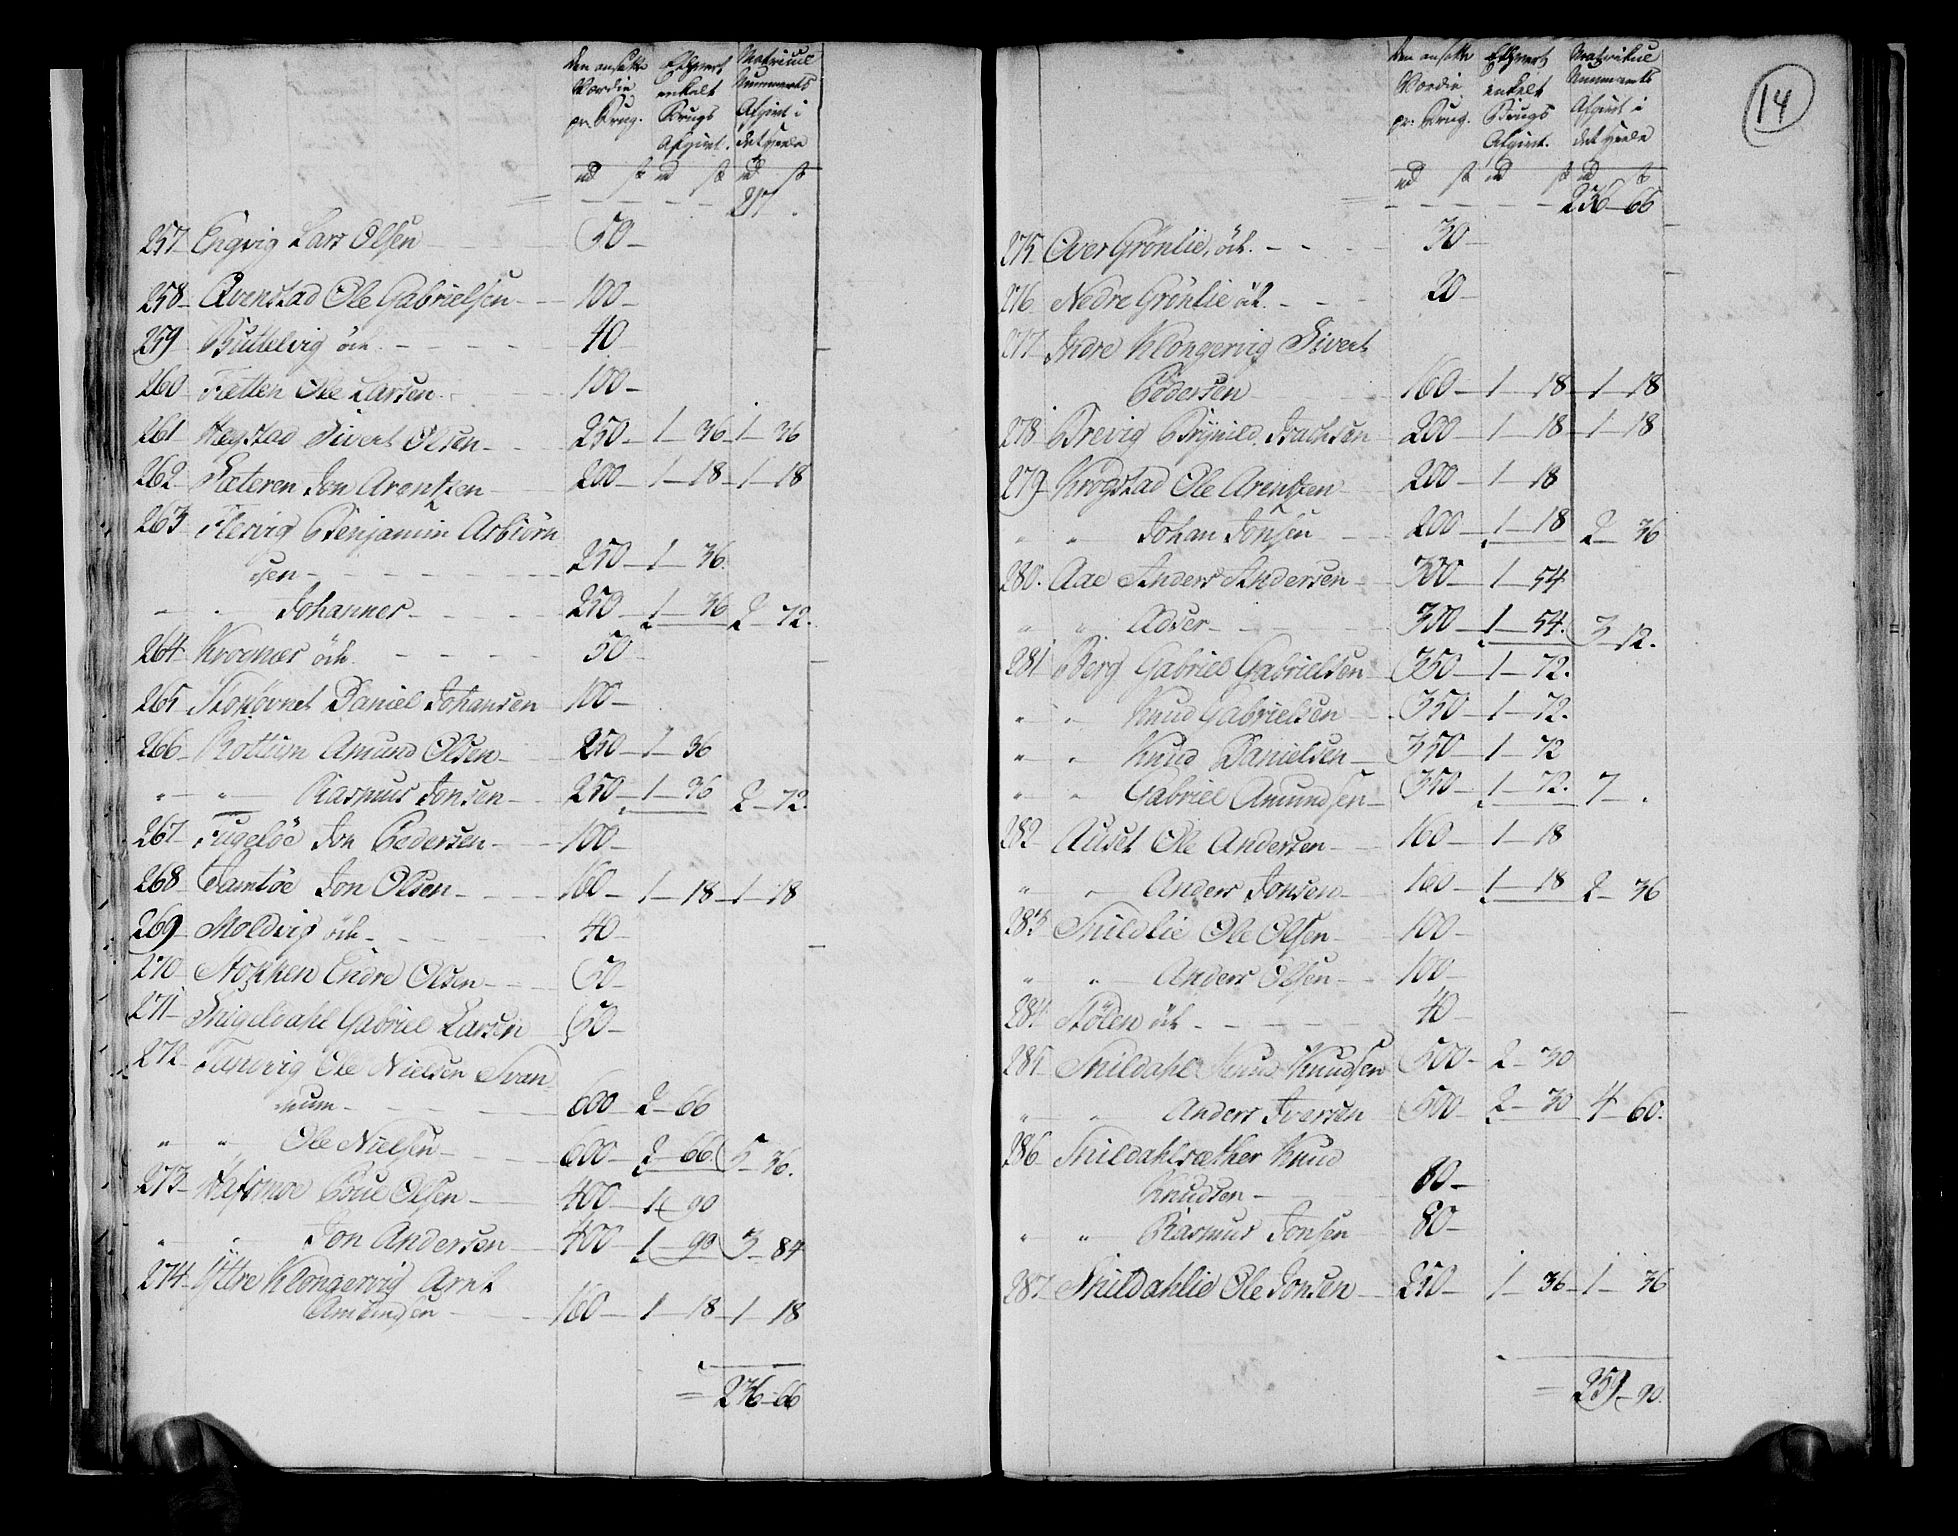 den ansatte Værdie pr. Brug.
Ethvert enkelt Brugs Afgivt.
Matricul Nummerets Afgivt i det Heele
rd sk rd sk rd sk
217 .
257 Engvig Lars Olsen 50
258 Qvenstad Ole Gabrielsen 100
259 Buttelvig öde 40
260 Fætten Ole Larsen 100
261 Hegstad Sivert Olsen 250 1 36 1 36
262 Sæteren Jon Arentzen 200 1 18 1 18
263 Flesvig Benjamin Asbiörn
sen 250 1 36
Johannes 250 1 36 2 72.
264 Krognæs öde 50
265 Daniel Johansen 100
266 Amund Olsen 250 1 36
" " Rasmus Jonsen 250 1 36 2 72.
267 Fugelöe Jon Pedersen 100
268 Jamtöe Jon Olsen 160 1 18 1 18
269 Moldvig öde 40
270 Stokken Endre Olsen 50
271 Snigeldahl Gabriel Larsen 50
272 Ole Nielsen Svan
num 600 2 66
" " Ole Nielsen 600 2 66 5 36.
273 Hafsmoe Poul Olsen 400 1 90
" " Jon Andersen 400 1 90 3 84
274 Yttre Klongervig Arnt
Amundsen 160 1 18 1 18
= 236 66
14
den ansatte Værdie pr. Brug.
Ethvert enkelt Brugs Afgivt.
Matrikul Nummerets Afgivt i det Heele
rd sk rd sk rd sk
236 66
275 Over Grönlie, öde 30
276 Nedre Grönlie öde 20
277 Indre Klongervig Sivert
Pedersen 160 1 18 1 18
278 Brevig Brynild Isachsen 200 1 18 1 18
279 Krogstad Ole Arentzen 200 1 18
" " Johan Jonsen 200 1 18 2 36
280. Aae Anders Andersen 300 1 54
" " Adser 300 1 54. 3 12.
281 Berg Gabriel Gabrielsen 350 1 72.
" " Knud Gabrielsen 350 1 72.
" " Knud Danielsen 350 1 72
" " Gabriel Amundsen 350 1 72. 7 .
282 Auset Ole Andersen 160 1 18
" " Anders Jonsen 160 1 18 2 36
283 Snildlie Ole Olsen 100
" " Anders Olsen 100
284 Stölen öde 40
285 Snildahl Knud Knudsen 500 2 30
" " Anders Iversen 500 2 30 4 60.
286 Snildahlsæther Knud
Knudsen 80
" " Rasmus Jonsen 80
287 Snildahlie Ole Jonsen 250 1 36 1 36
= 259 90.